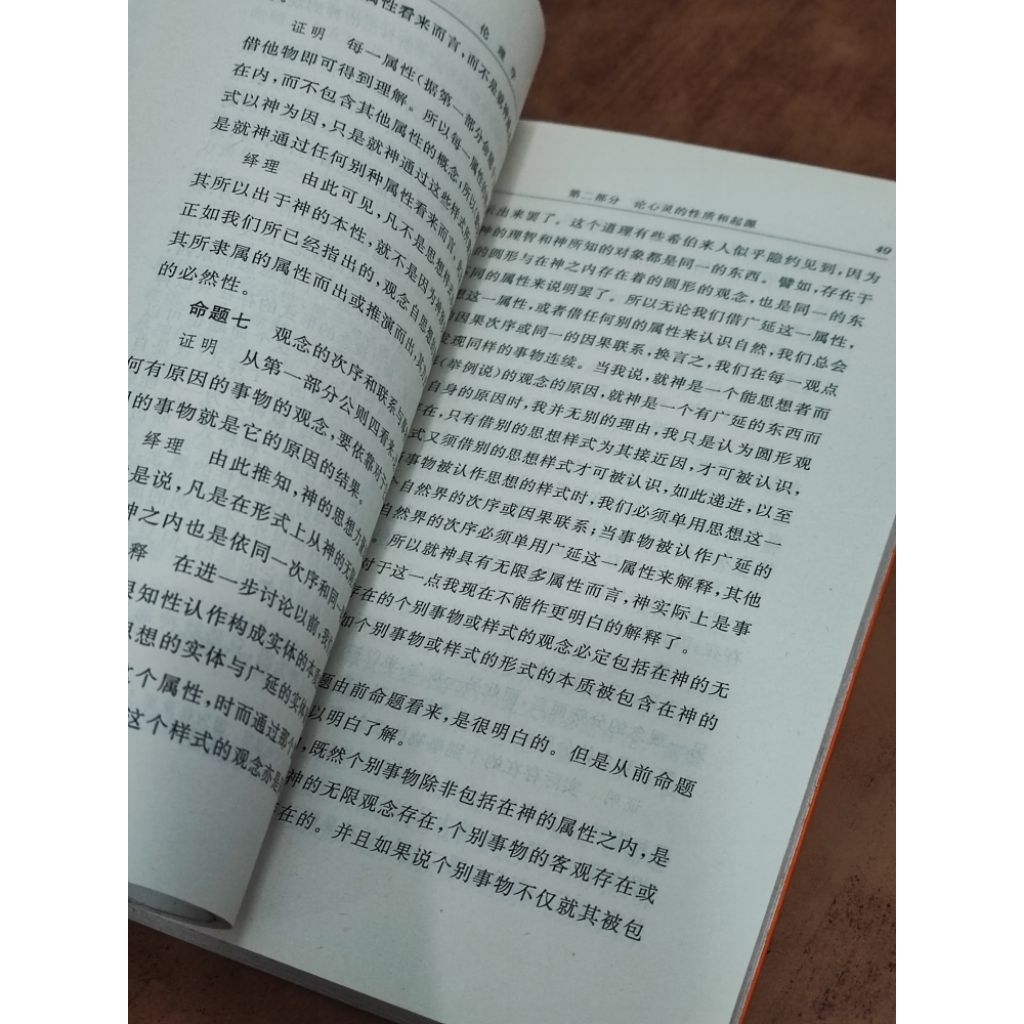 伦理学
性看来而言,而不是就
证明 每一属性(据第一部分命题
借他物即可得到理解。所以每一属性的
在内,而不包含其他属性的概念,所以
式以神为因,只是就神通过这些样式
是就神通过任何别种属性看来而言
绎理 由此可见,凡不是思想样
其所以出于神的本性,就不是因为神
正如我们所已经指出的,观念自思想
其所隶属的属性而出或推演而出,其
的必然性。
命题七 观念的次序和联系与
证明 从第一部分公则四看来
何有原因的事物的观念,要依靠对于
的事物就是它的原因的结果。
绎理 由此推知,神的思想力
是说,凡是在形式上从神的无
神之内也是依同一次序和同一
释 在进一步讨论以前,我
知性认作构成实体的本
思想的实体与广延的实体
个属性,时而通过那个
这个样式的观念亦是
第二部分 论心灵的性质和起源
49
出来罢了。这个道理有些希伯来人似乎隐约见到,因为
神的理智和神所知的对象都是同一的东西。譬如,存在于
的圆形与在神之内存在着的圆形的观念,也是同一的东
不同的属性来说明罢了。所以无论我们借广延这一属性,
想这一属性,或者借任何别的属性来认识自然,我们总会
因果次序或同一的因果联系,换言之,我们在每一观点
发现同样的事物连续。当我说,就神是一个能思想者而
(举例说)的观念的原因,就神是一个有广延的东西而
自身的原因时,我并无别的理由,我只是认为圆形观
在,只有借别的思想样式为其接近因,才可被认识,
式又须借别的思想样式才可被认识,如此递进,以至
事物被认作思想的样式时,我们必须单用思想这一
个自然界的次序或因果联系;当事物被认作广延的
自然界的次序必须单用广延这一属性来解释,其他
所以就神具有无限多属性而言,神实际上是事
对于这一点我现在不能作更明白的解释了。
存在的个别事物或样式的观念必定包括在神的无
如个别事物或样式的形式的本质被包含在神的
题由前命题看来,是很明白的。但是从前命题
以明白了解。
,既然个别事物除非包括在神的属性之内,是
神的无限观念存在,个别事物的客观存在或
在的。并且如果说个别事物不仅就其被包